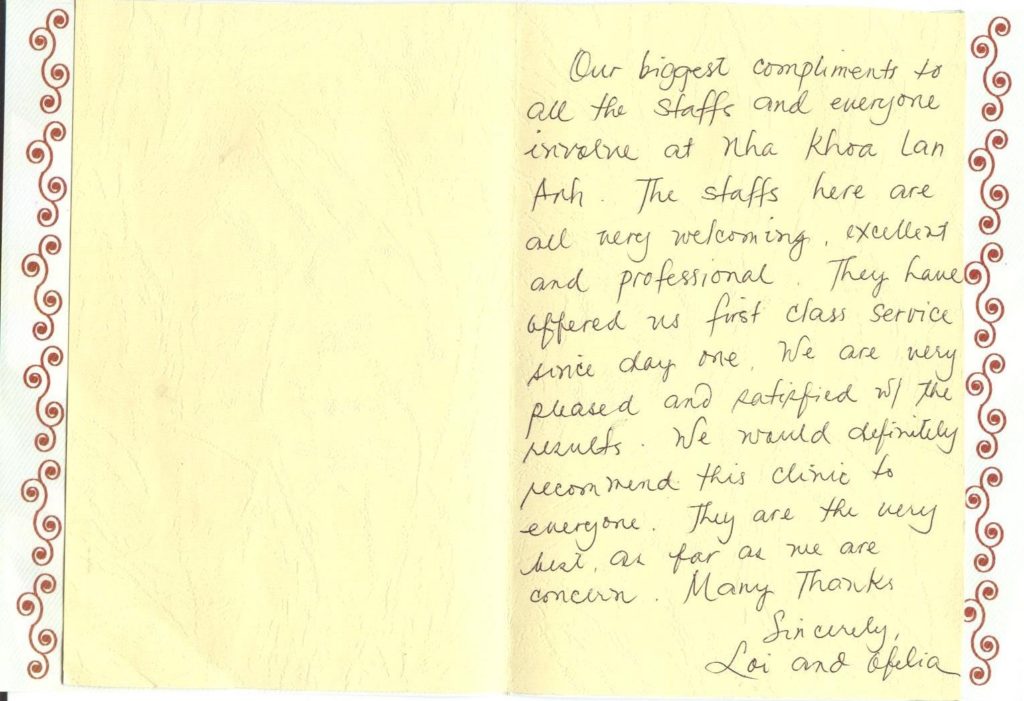 Our biggest compliments to
all the staffs and everyone
involve at Nha Khoa Lan
Anh. The staffs here are
all very welcoming, excellent
and professional. They have
offered us first class service
since day one. We are very
pleased and satisfied w/ the
results. We would definitely
recommend this clinic to
everyone. They are the very
best, as far as we are
concern. Many Thanks
Sincerely,
Loi and Ofelia